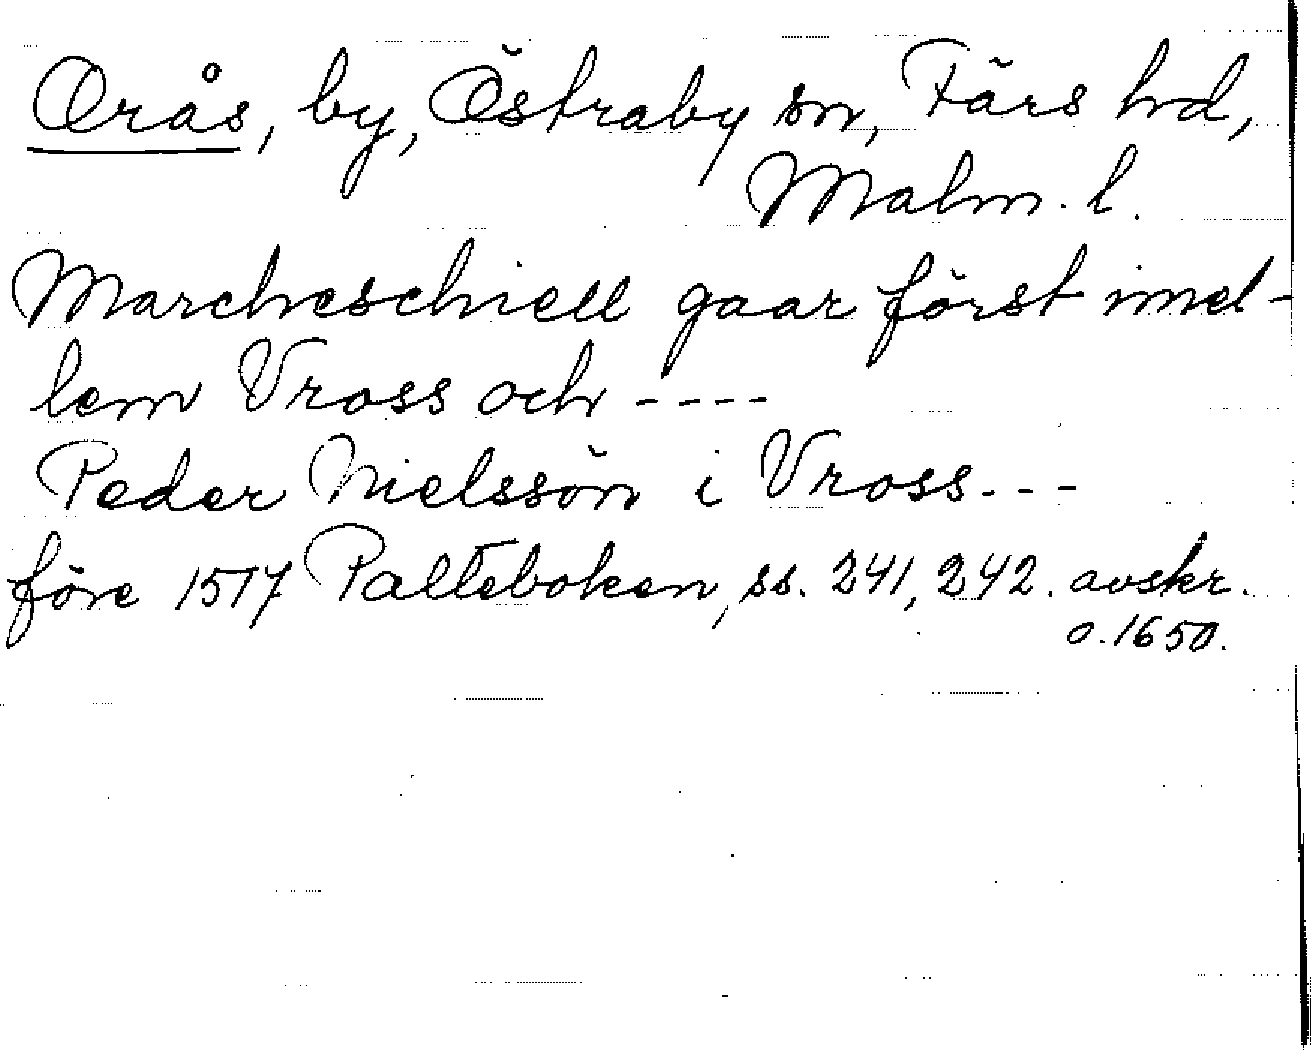 Orås, by, Östraby sn, Färs hd,
Malm. l.
Marcheschiell gaar först imel-
lem Vross och ----
Peder Nielssön i Vross---
före 1517 Palteboken, ss. 241, 242. avskr.
o. 1650.